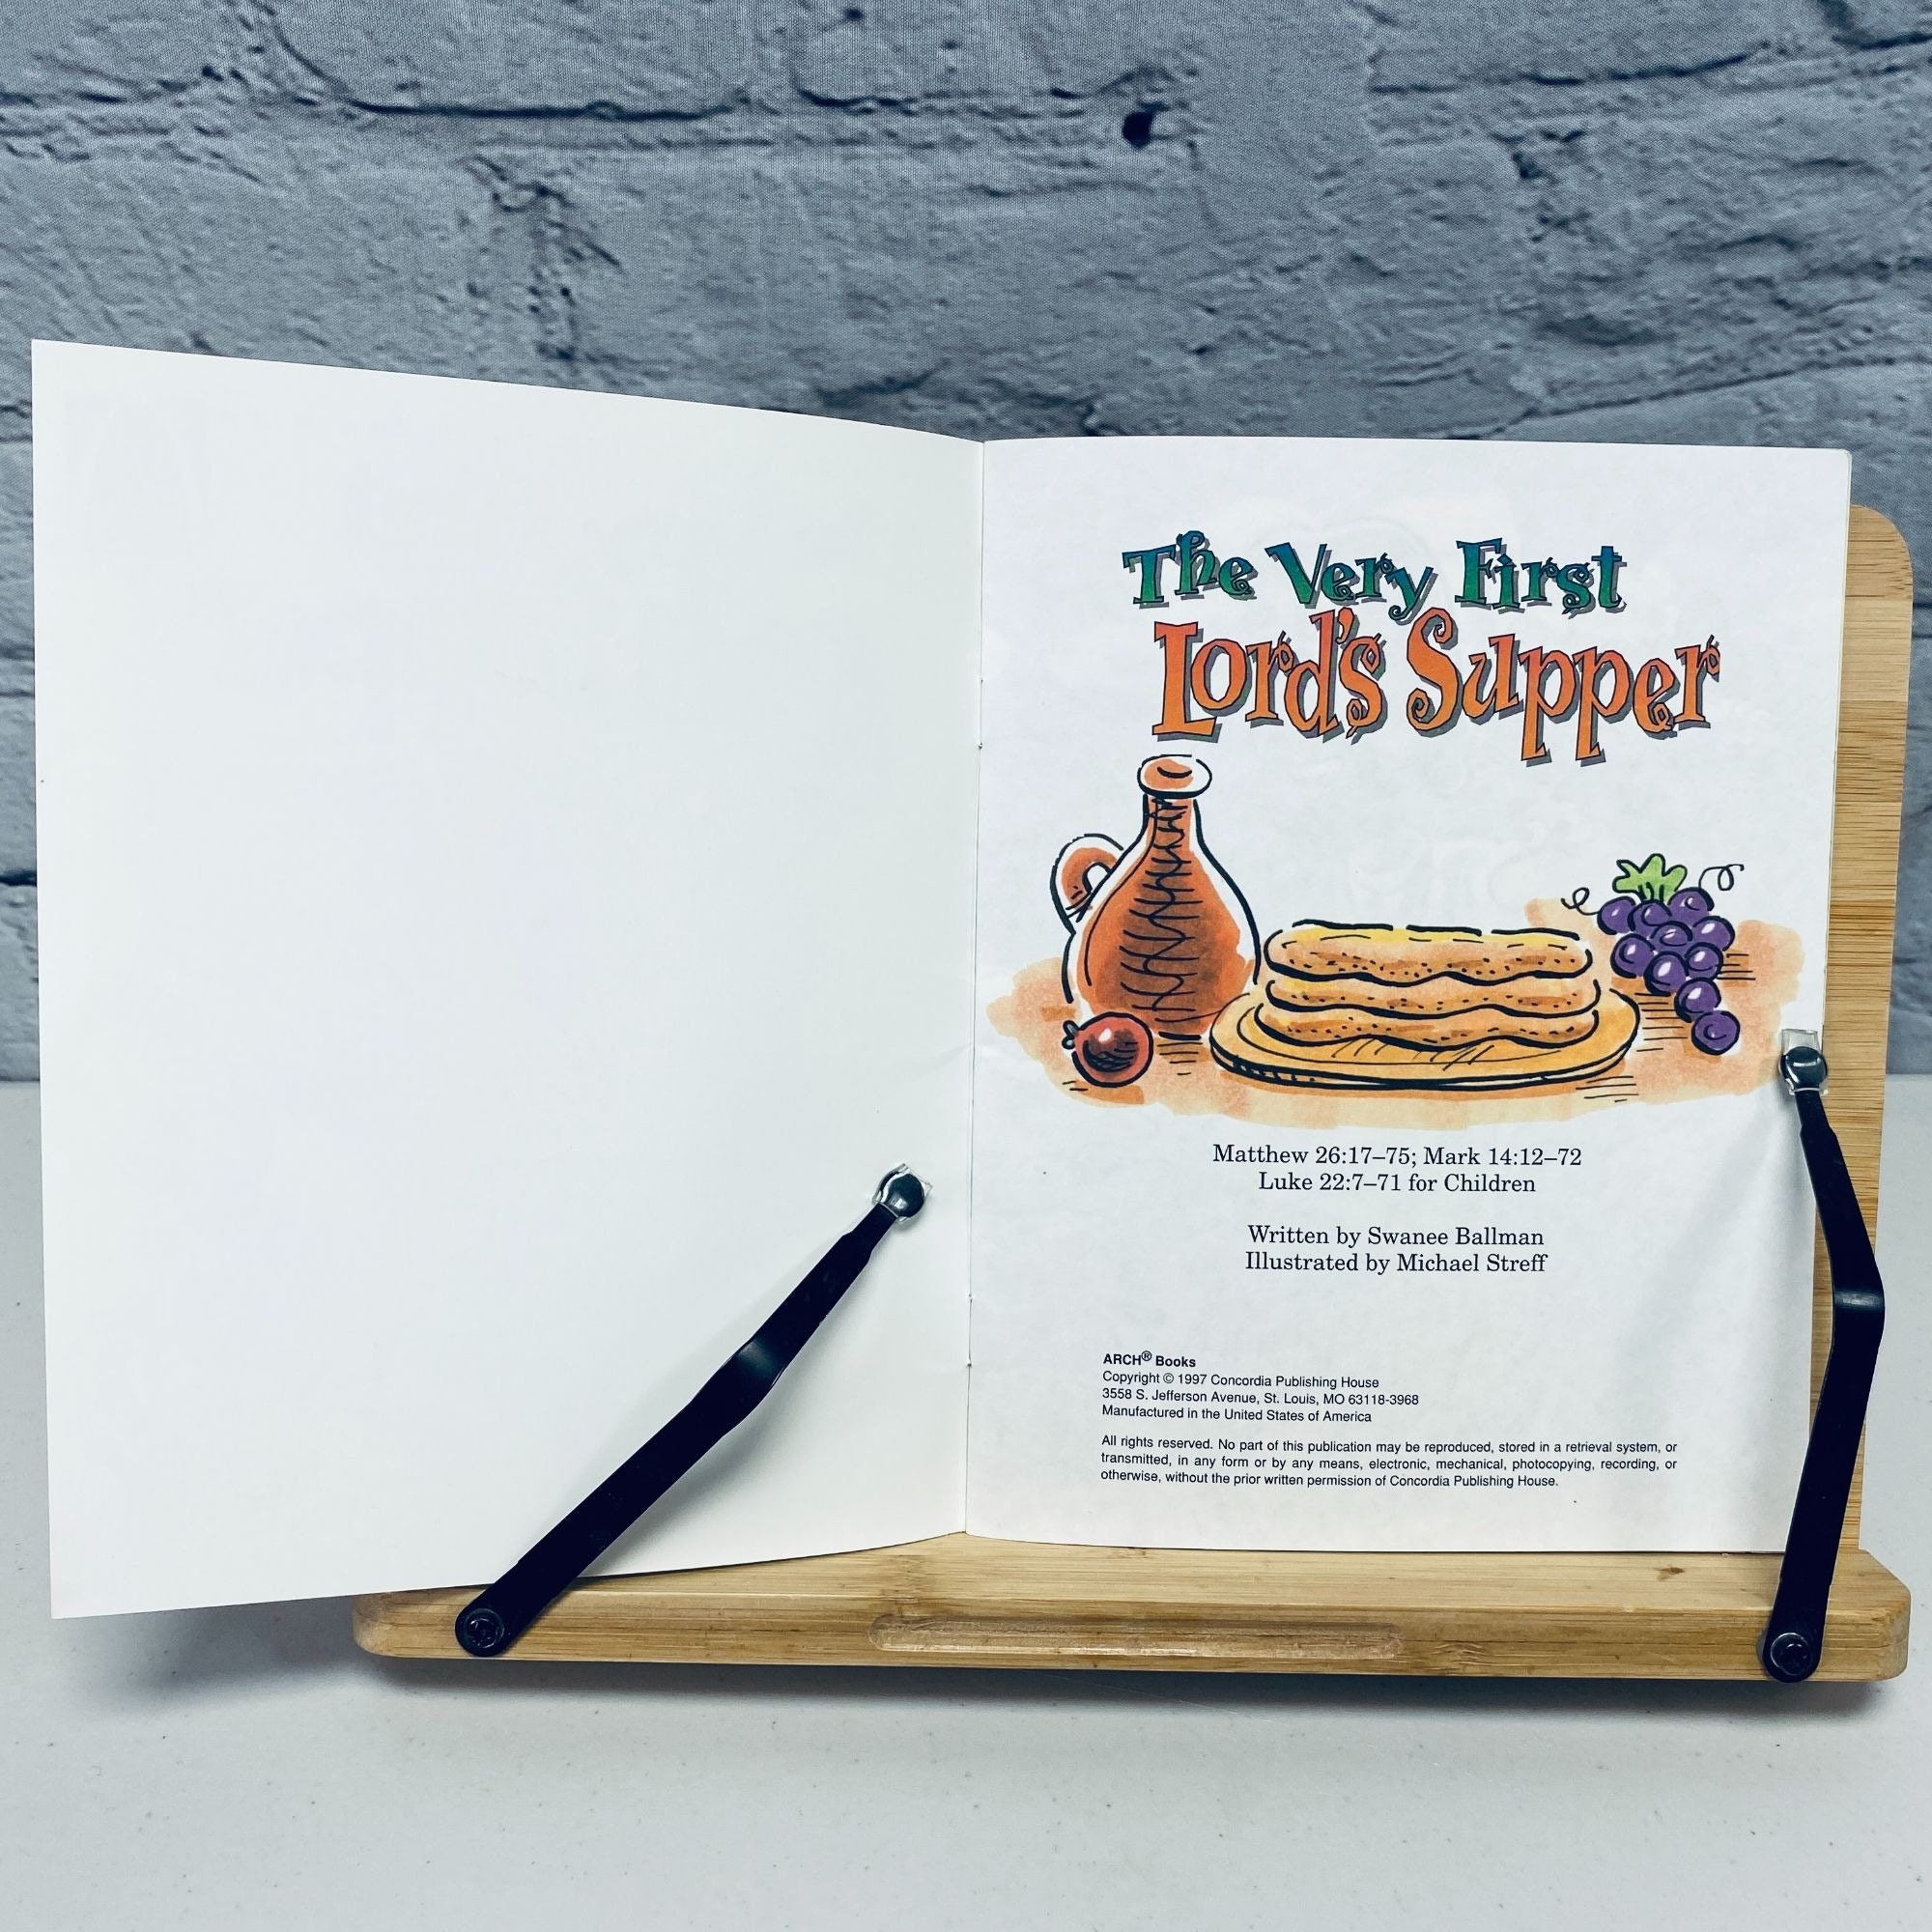 The Very First
Lord's Supper
Matthew 26:17–75; Mark 14:12–72
Luke 22:7–71 for Children
Written by Swanee Ballman
Illustrated by Michael Streff
ARCH® Books
Copyright © 1997 Concordia Publishing House
3558 S. Jefferson Avenue, St. Louis, MO 63118-3968
Manufactured in the United States of America
All rights reserved. No part of this publication may be reproduced, stored in a retrieval system, or
transmitted, in any form or by any means, electronic, mechanical, photocopying, recording, or
otherwise, without the prior written permission of Concordia Publishing House.